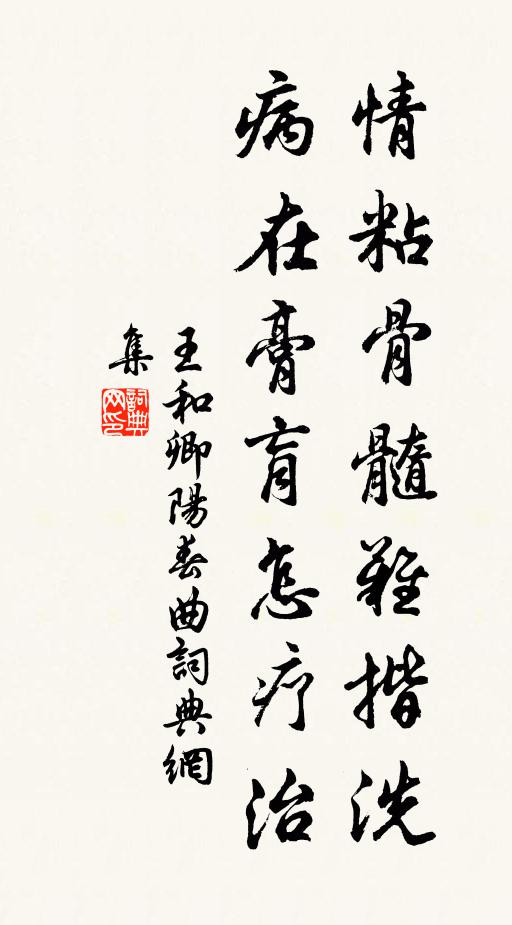 情粘骨髓難揩洗
病在膏肓怎療治
王和卿陽春曲詞典網
集
詞典
网印